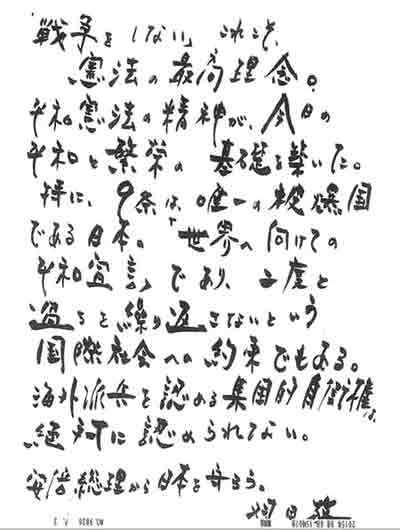 戦争をしない」これこそ、
憲法の最高理念。
平和憲法の精神が、今日の
平和と繁栄の基礎を築いた。
特に、9条は、唯一の被爆国
である日本の「世界へ向けての
平和宣言」であり、二度と
過ちを繰り返さないという
国際社会への約束でもある。
海外派兵を認める集団的自衛権は、
絶対に認められない。
安倍総理から日本を守ろう。